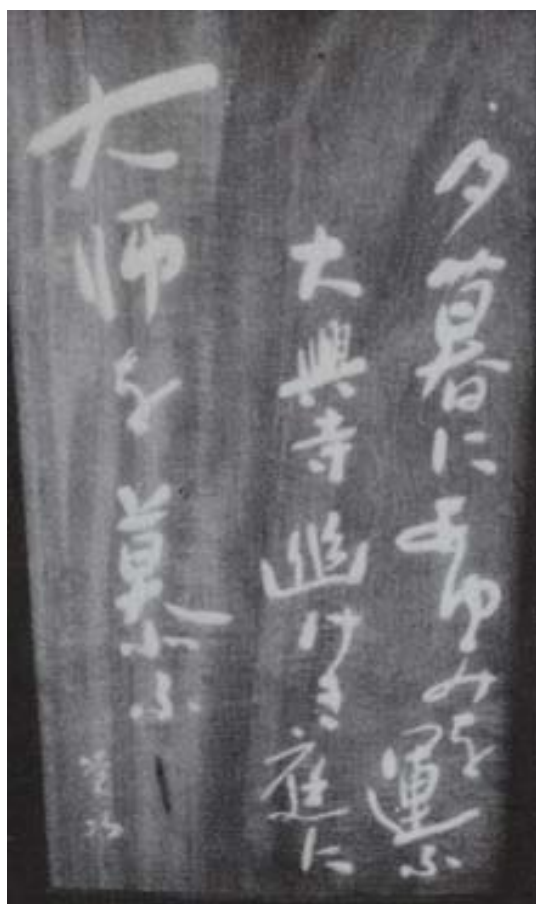 夕暮にあゆみを運ふ
大興寺幽けき庭に
大師を慕ふ